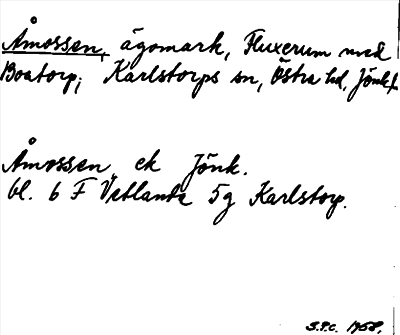 Åmossen, ägomark, Fluxerum med
Boatorp; Karlstorps sn, Östra hd, Jönk.
Åmossen ek Jönk.
bl. 6 F Vetlanda 5g Karlstorp.
S.P.C. 1958.